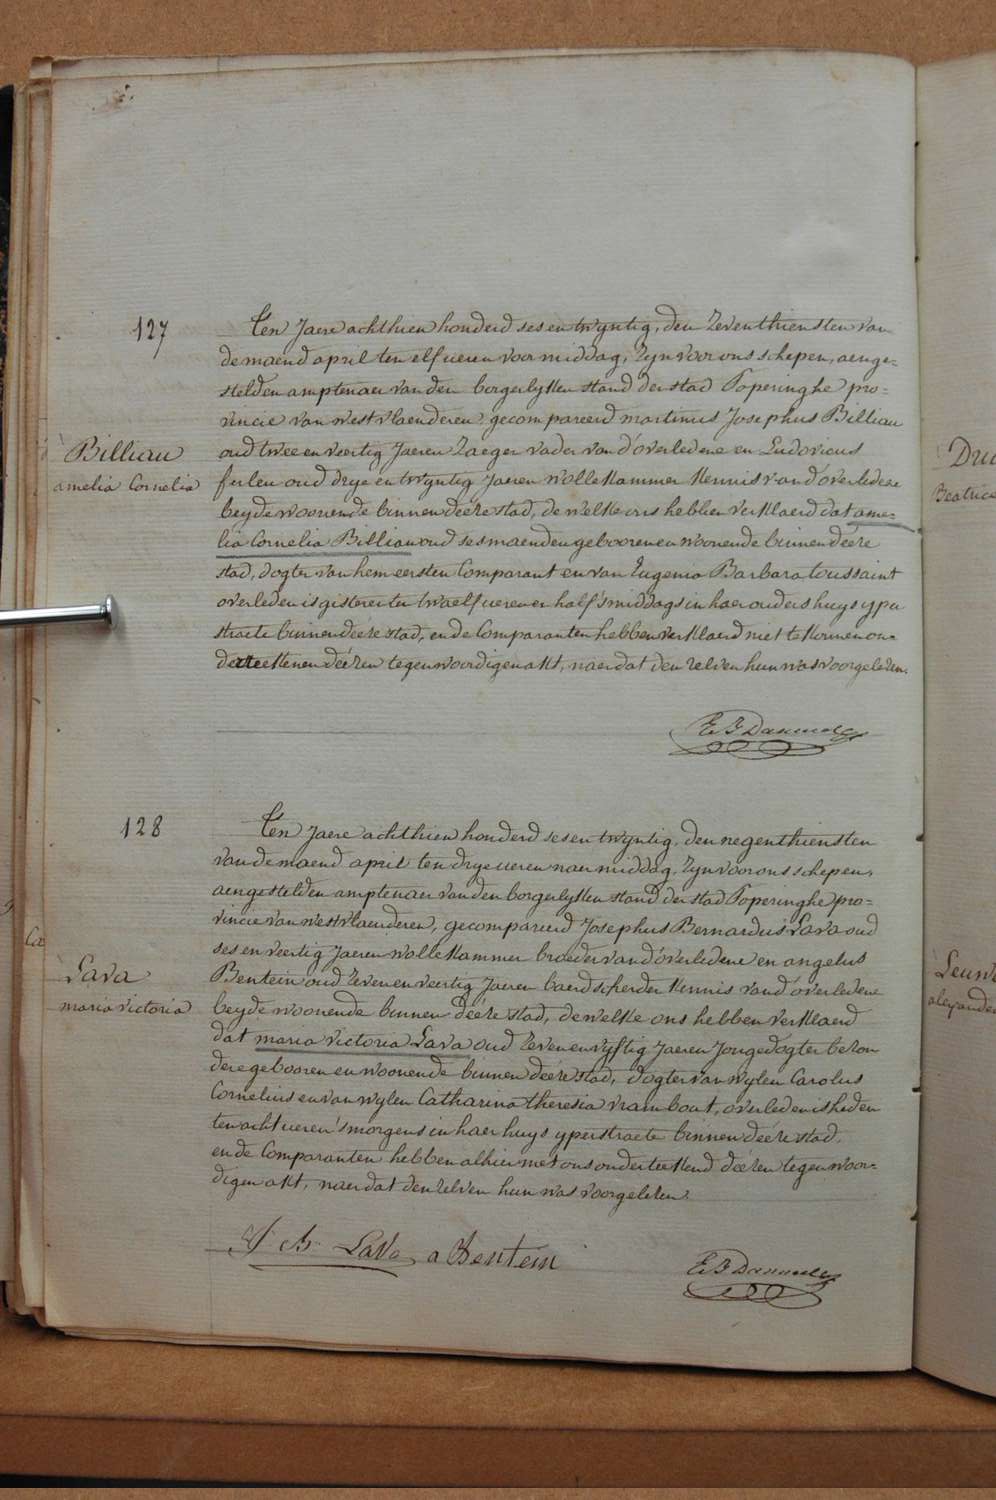 127
Ten Jaere achthien honderd ses en twyntig, den Zeventhiensten van
de maend april ten elf ueren voor middag, Zyn voor ons schepen, aenge-
stelden amptenaer van den borgerlyken stand der stad Poperinghe pro-
vincie van westvlaenderen, gecompareerd martinus Josephus Billiau
oud twee en veertig Jaeren Zaeger vader van d'overledene en Ludovicus
Billiau
amelia Cornelia
ferleu oud drye en twyntig Jaeren wollekammer Kennis van d'overledene
beyde woonende binnen déére stad, de welke ons hebben verklaerd dat ame-
lia Cornelia Billiau oud ses maenden gebooren en woonende binnen déére
stad, dogter van hem eersten Comparant en van Eugenia Barbara toussaint
overleden is gisteren ten twaelf ueren en half s'middags in haer ouders huys yper
straete binnen déére stad, en de Comparanten hebben verklaerd niet te konnen on-
derteekenen déézen tegenwoordigen akt, naer dat den zelven hun was voorgelezen.
128
Ten Jaere achthien honderd ses en twyntig, den negenthiensten
van de maend april ten drye ueren naer middag, Zyn voor ons schepen,
aengestelden amptenaer van den borgerlyken stand der stad Poperinghe pro-
vincie van westvlaenderen, gecompareerd Josephus Bernardus Lava oud
ses en veertig Jaeren wollekammer broeder van d'overledene en angelus
Lava
maria victoria
Bentein oud Zeven en veertig Jaeren baerdscherder Kennis van d'overledene
beyde woonende binnen déére stad, de welke ons hebben verklaerd
dat maria victoria Lava oud Zeven en vyftig Jaeren Jongedogter bezon
dere gebooren en woonende binnen déére stad, dogter van wylen Carolus
Cornelius en van wylen Catharina theresia vrambout, overleden is heden
ten acht ueren s'morgens in haer huys yperstraete binnen déére stad,
en de Comparanten hebben alhier met ons onderteekend déézen tegenwoor-
digen akt, naer dat den zelven hun was voorgelezen.
J B Lava a Bentein